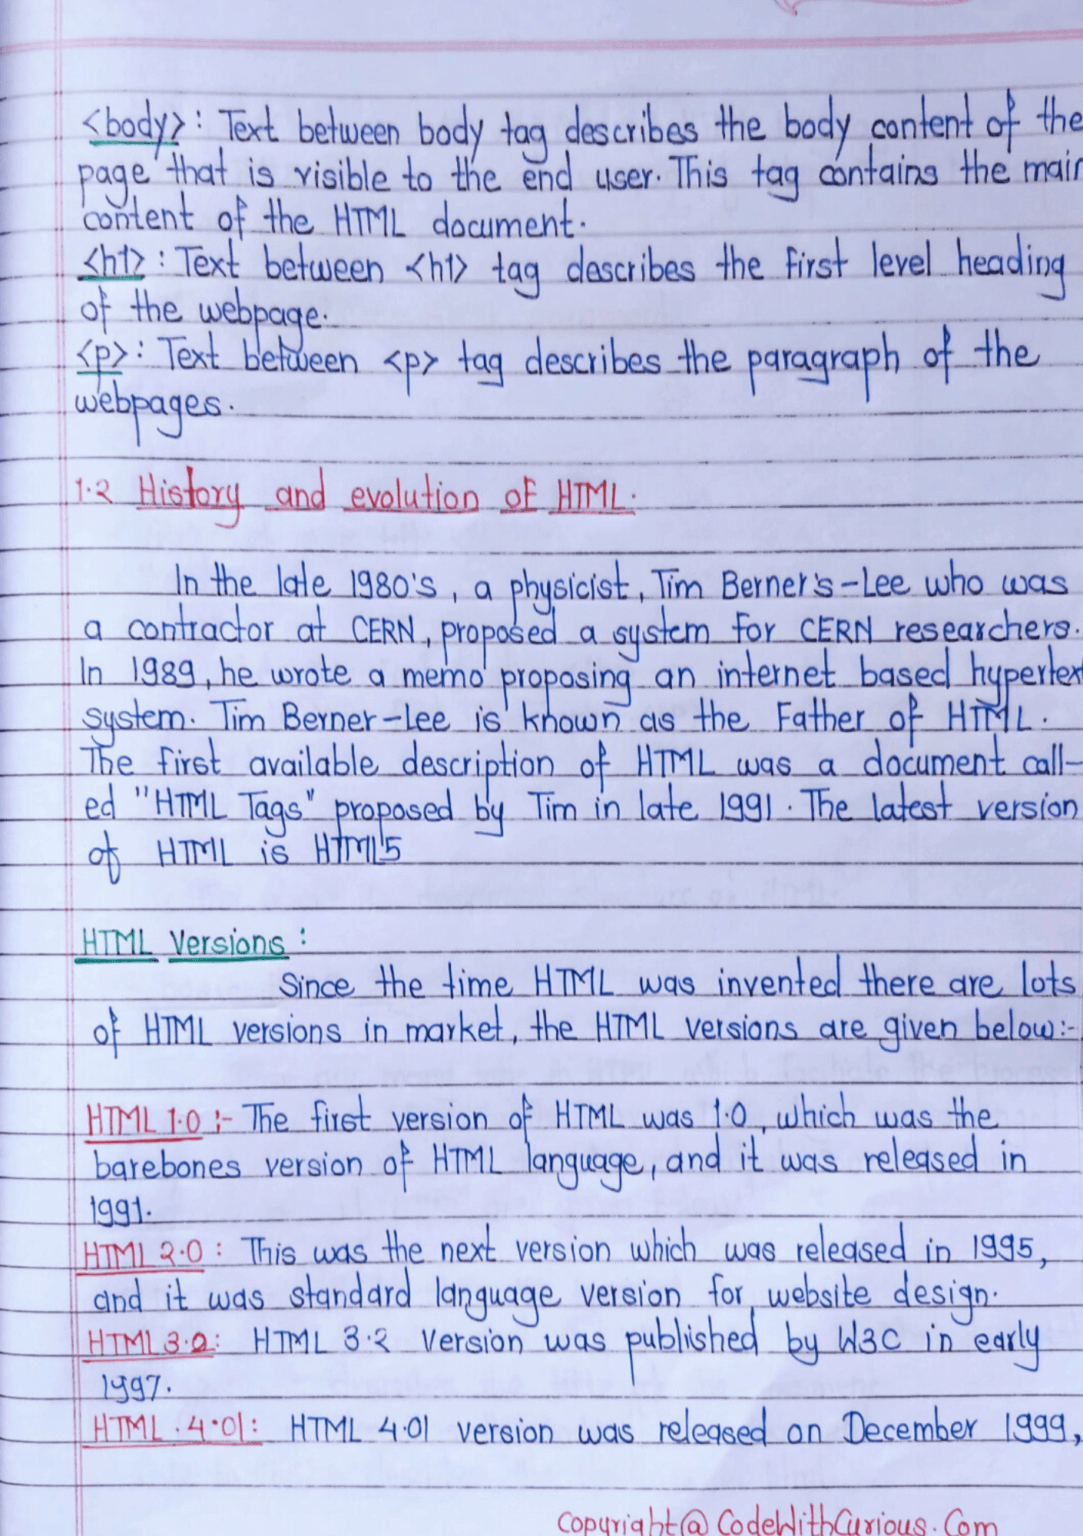 <body>: Text between body tag describes the body content of the
page that is visible to the end user. This tag contains the main
content of the HTML document.
<h1>: Text between <h1> tag describes the first level heading
of the webpage.
<p>: Text between <p> tag describes the paragraph of the
webpages.
1.2 History and evolution of HTML.
In the late 1980's, a physicist, Tim Berner's-Lee who was
a contractor at CERN, proposed a system for CERN researchers.
In 1989, he wrote a memo proposing an internet based hypertex
system. Tim Berner-Lee is known as the Father of HTML.
The first available description of HTML was a document call-
ed "HTML Tags" proposed by Tim in late 1991. The latest version
of HTML is HTML5
HTML Versions:
Since the time HTML was invented there are lots
of HTML versions in market, the HTML versions are given below:-
HTML 1.0 :- The first version of HTML was 1.0, which was the
barebones version of HTML language, and it was released in
1991.
HTML 2.0 : This was the next version which was released in 1995,
and it was standard language version for website design.
HTML 3.2: HTML 3.2 version was published by W3C in early
1997.
HTML .4.01: HTML 4.01 version was released on December 1999,
Copyright@CodeWithCurious.Com